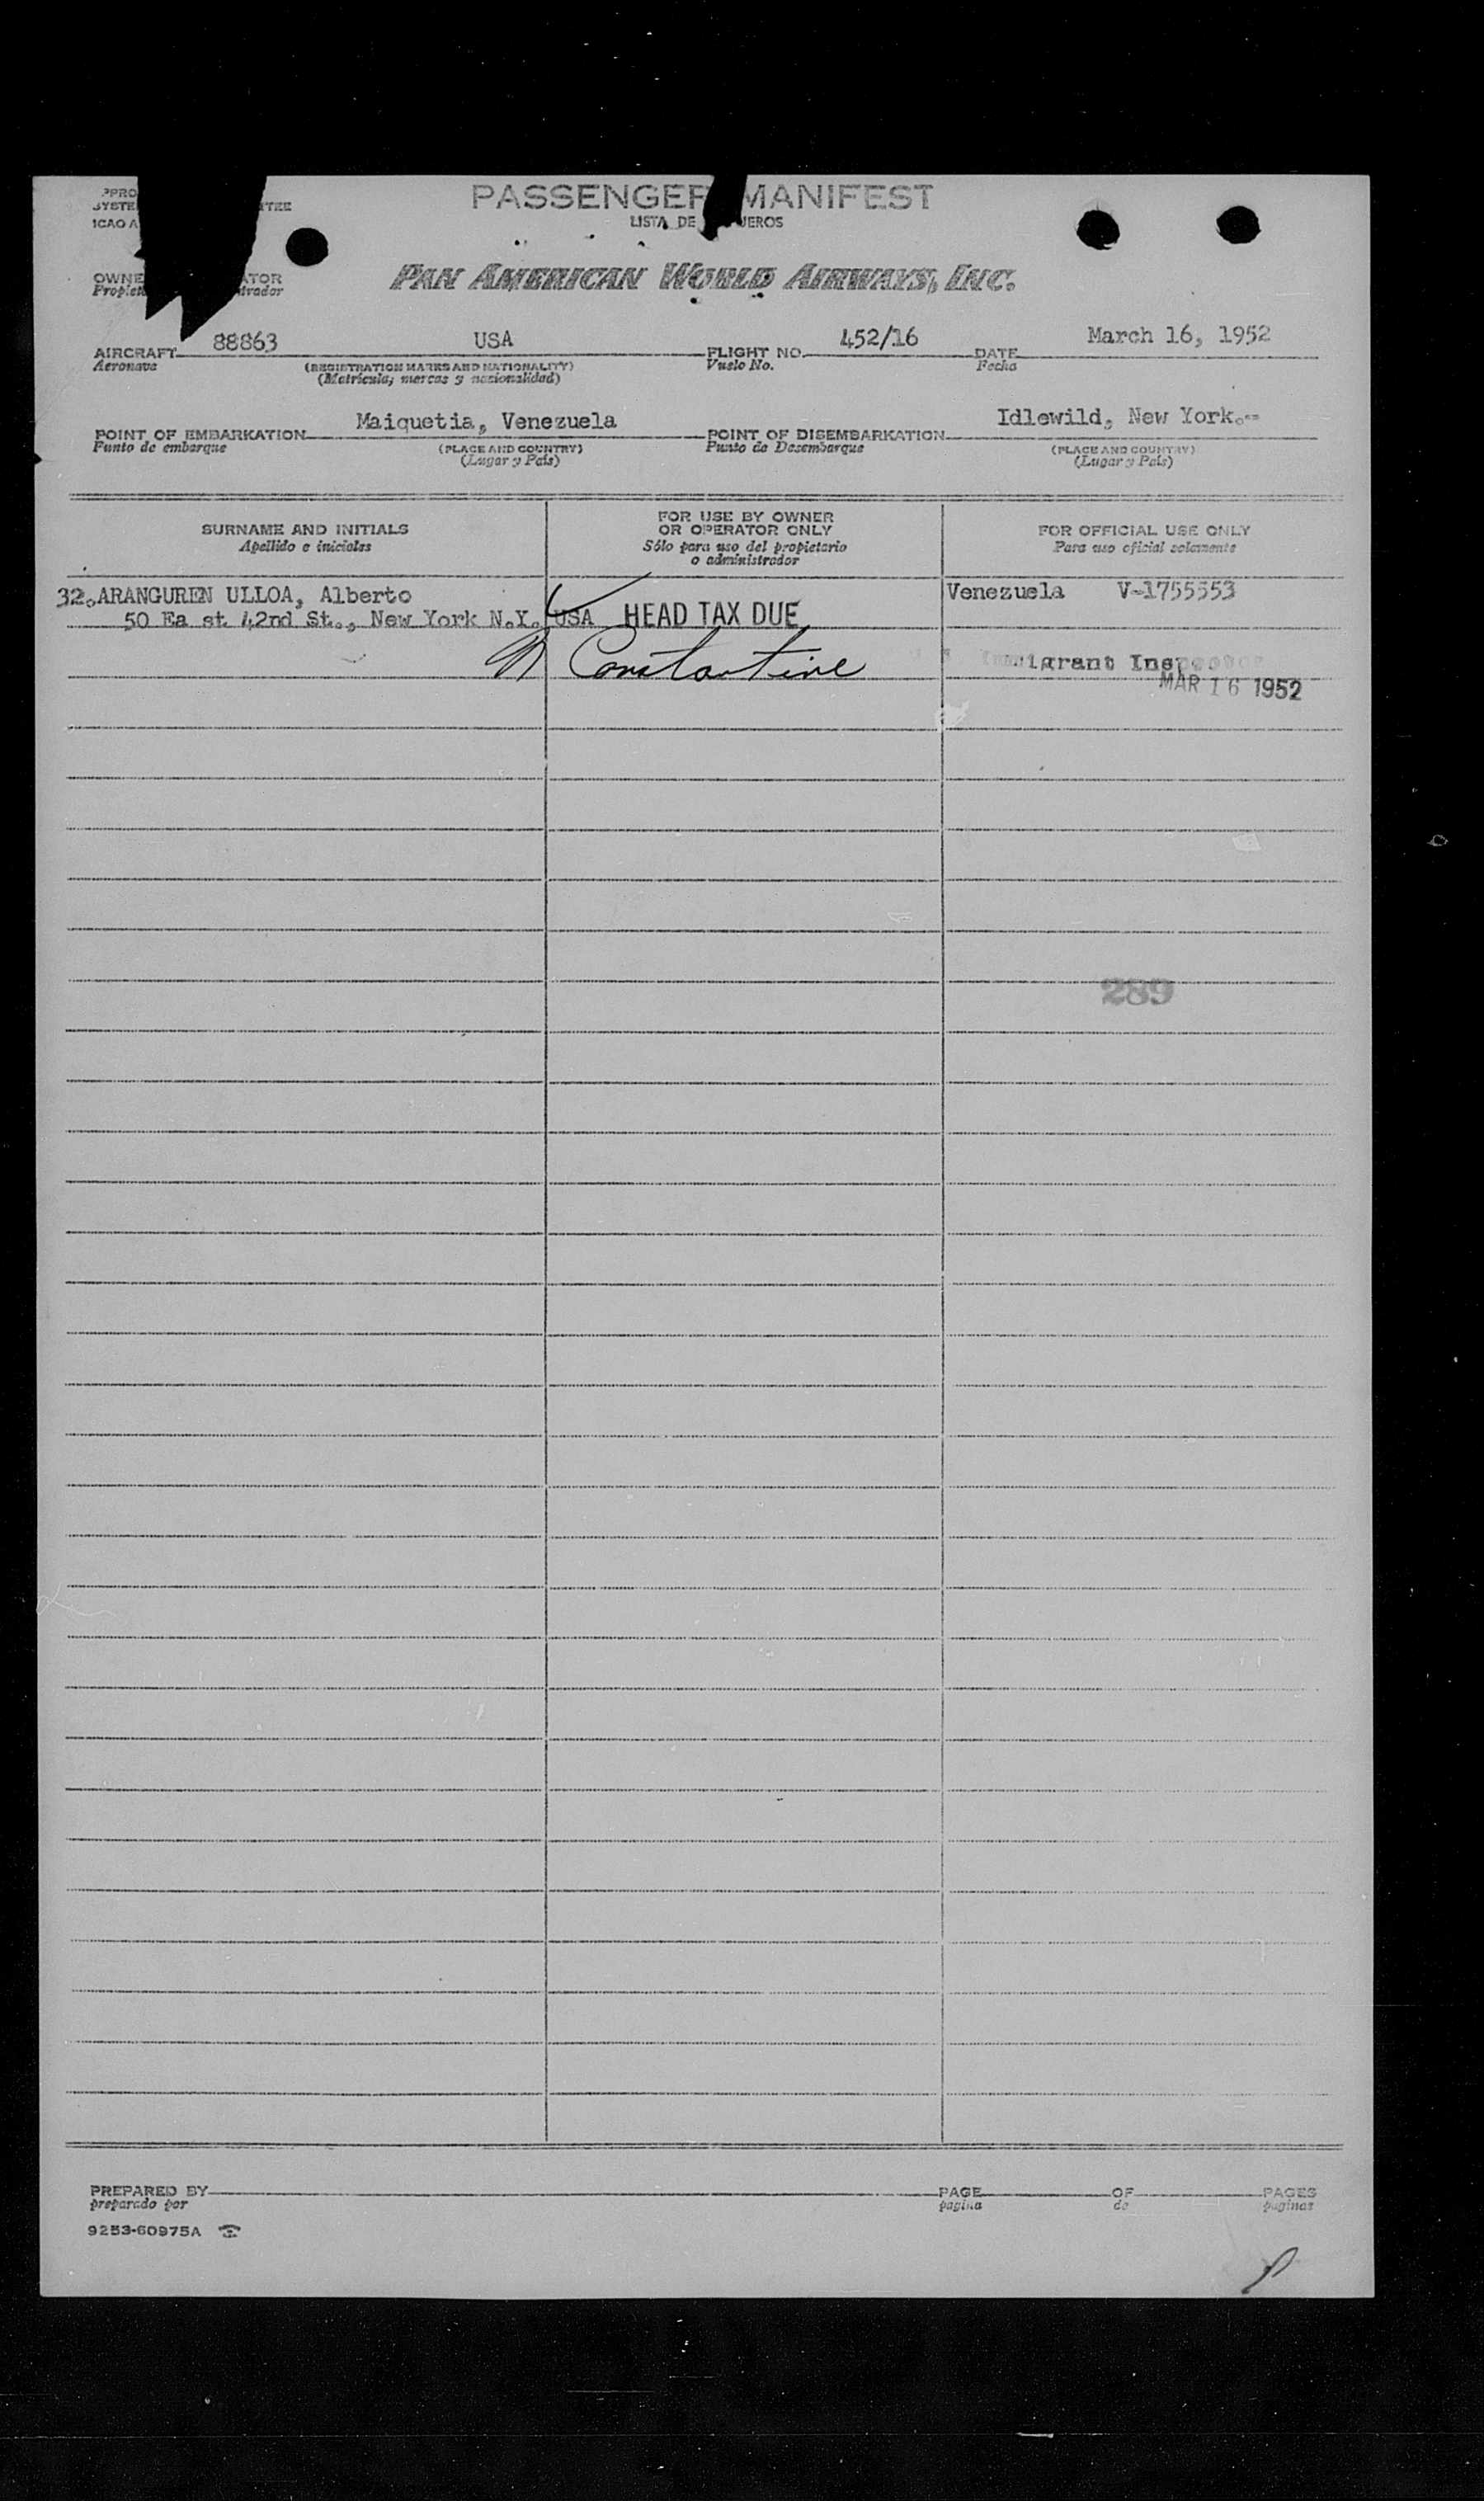 PASSENGER MANIFEST
LISTA DE
PAN AMERICAN WORLD AIRWAYS, INC.
AIRCRAFT 88863 USA FLIGHT NO. 452/16 DATE March 16, 1952
Aeronave (REGISTRATION MARKS AND NATIONALITY) Vuelo No. Fecha
(Matrícula, marcas y nacionalidad)
POINT OF EMBARKATION Maiquetia, Venezuela POINT OF DISEMBARKATION Idlewild, New York.--
Punto de embarque (PLACE AND COUNTRY) Punto de Desembarque (PLACE AND COUNTRY)
(Lugar y País) (Lugar y País)
SURNAME AND INITIALS
Apellido e iniciales
FOR USE BY OWNER
OR OPERATOR ONLY
Sólo para uso del propietario
o administrador
FOR OFFICIAL USE ONLY
Para uso oficial solamente
32.ARANGUREN ULLOA, Alberto Venezuela V-1755553
50 Ea st 42nd St., New York N.Y. USA HEAD TAX DUE
Constantine Immigrant Inspector
MAR 16 1952
289
PREPARED BY PAGE OF PAGES
preparado por pagina de paginas
9253-60975A